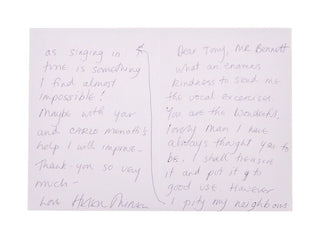 Dear Tony, Mr Bennett
what an enormous
kindness to send me
the vocal excercises.
You are the wonderful,
lovely man I have
always thought you to
be. I shall treasure
it and put it to
good use. However
I pity my neighbours
as singing in
tune is something
I find almost
impossible!
Maybe with your
and CARLO Menotti's
help I will improve-
Thank-you so very
much-
Love Helen Mirren